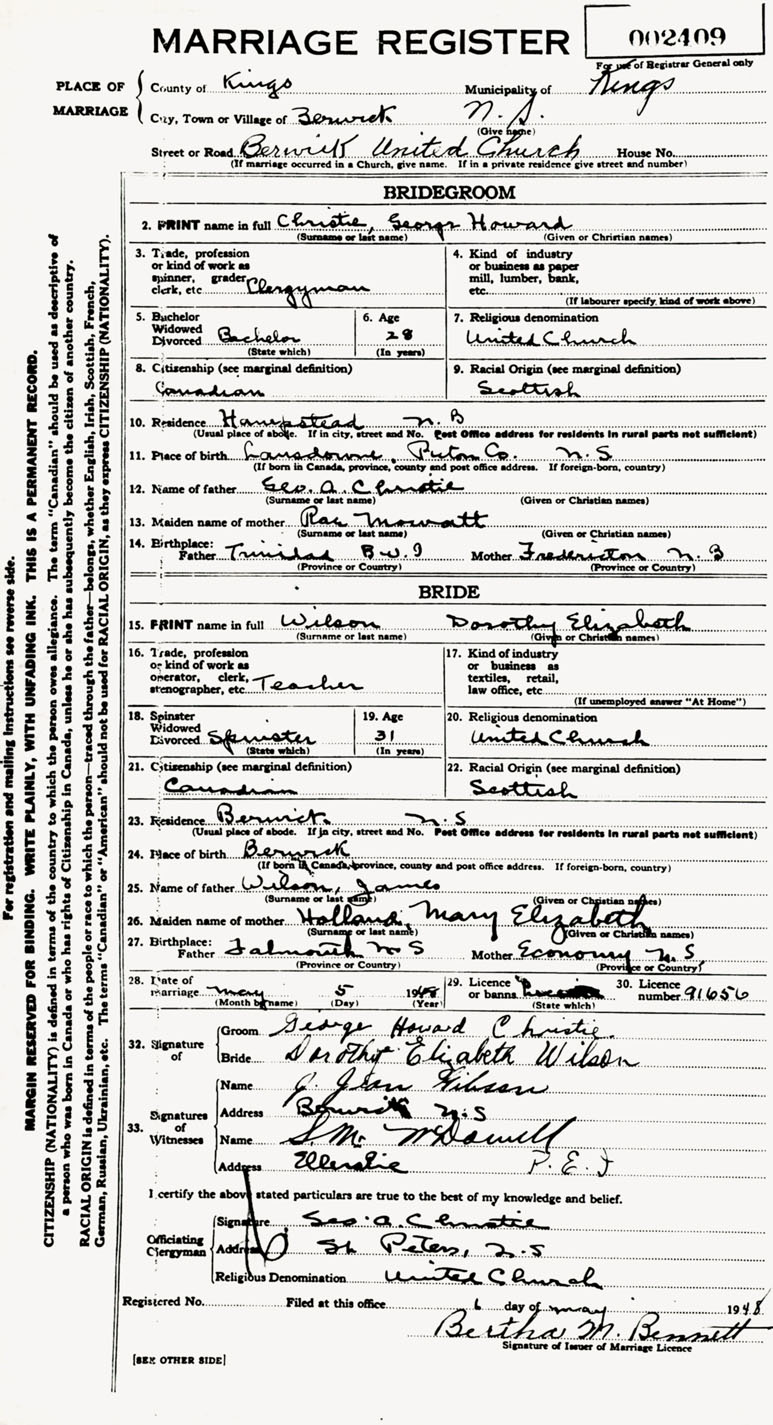 MARRIAGE REGISTER
002409
For use of Registrar General only
PLACE OF MARRIAGE
County of Kings Municipality of Kings
City, Town or Village of Berwick N.S.
(Give name)
Street or Road Berwick United Church House No.
(If marriage occurred in a Church, give name. If in a private residence give street and number)
BRIDEGROOM
2. PRINT name in full Christie, George Howard
(Surname or last name) (Given or Christian names)
3. Trade, profession or kind of work as spinner, grader, clerk, etc. Clergyman
4. Kind of industry or business as paper mill, lumber, bank, etc.
(If labourer specify kind of work above)
5. Bachelor Widowed Divorced Bachelor
(State which)
6. Age 28
(In years)
7. Religious denomination
United Church
8. Citizenship (see marginal definition)
Canadian
9. Racial Origin (see marginal definition)
Scottish
10. Residence Hampstead N.B
(Usual place of abode. If in city, street and No. Post Office address for residents in rural parts not sufficient)
11. Place of birth Lansdowne, Pictou Co. N.S
(If born in Canada, province, county and post office address. If foreign-born, country)
12. Name of father Geo. A. Christie
(Surname or last name) (Given or Christian names)
13. Maiden name of mother Rae Mowatt
(Surname or last name) (Given or Christian names)
14. Birthplace: Father Trinidad B.W.I Mother Fredericton N.B
(Province or Country) (Province or Country)
BRIDE
15. PRINT name in full Wilson Dorothy Elizabeth
(Surname or last name) (Given or Christian names)
16. Trade, profession or kind of work as operator, clerk, stenographer, etc. Teacher
17. Kind of industry or business as textiles, retail, law office, etc.
(If unemployed answer "At Home")
18. Spinster Widowed Divorced Spinster
(State which)
19. Age 31
(In years)
20. Religious denomination
United Church
21. Citizenship (see marginal definition)
Canadian
22. Racial Origin (see marginal definition)
Scottish
23. Residence Berwick N.S
(Usual place of abode. If in city, street and No. Post Office address for residents in rural parts not sufficient)
24. Place of birth Berwick
(If born in Canada, province, county and post office address. If foreign-born, country)
25. Name of father Wilson, James
(Surname or last name) (Given or Christian names)
26. Maiden name of mother Holland, Mary Elizabeth
(Surname or last name) (Given or Christian names)
27. Birthplace: Father Falmouth N S Mother Economy N.S,
(Province or Country) (Province or Country)
28. Date of marriage May 5 1948
(Month by name) (Day) (Year)
29. Licence or banns
(State which)
30. Licence number 91656
32. Signature of
Groom George Howard Christie.
Bride Dorothy Elizabeth Wilson
33. Signatures of Witnesses
Name J. Jean Wilson
Address Berwick N.S
Name S.M. McDowell
Address Ellerslie P.E.I
I certify the above stated particulars are true to the best of my knowledge and belief.
Officiating Clergyman
Signature Geo. A. Christie
Address St. Peters, N.S
Religious Denomination United Church
Registered No. Filed at this office 6 day of May 1948
Bertha M. Bennett
Signature of Issuer of Marriage Licence
[SEE OTHER SIDE]
For registration and mailing instructions see reverse side.
MARGIN RESERVED FOR BINDING. WRITE PLAINLY, WITH UNFADING INK. THIS IS A PERMANENT RECORD.
CITIZENSHIP (NATIONALITY) is defined in terms of the country to which the person owes allegiance. The term "Canadian" should be used as descriptive of
a person who was born in Canada or who has rights of Citizenship in Canada, unless he or she has subsequently become the citizen of another country.
RACIAL ORIGIN is defined in terms of the people or race to which the person—traced through the father—belongs, whether English, Irish, Scottish, French,
German, Russian, Ukrainian, etc. The terms "Canadian" or "American" should not be used for RACIAL ORIGIN, as they express CITIZENSHIP (NATIONALITY).